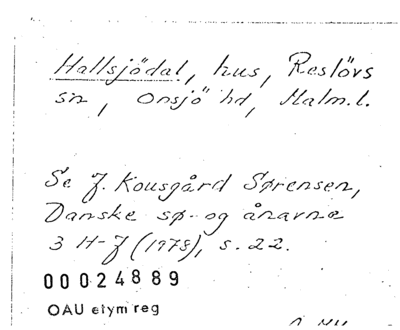 Hallsjödal, hus, Reslövs
sn, Onsjö hd, Malm. l.
Se J. Kousgård Sørensen,
Danske sø- og ånavne
3 H-J (1978), s. 22.
00024889
OAU etym reg